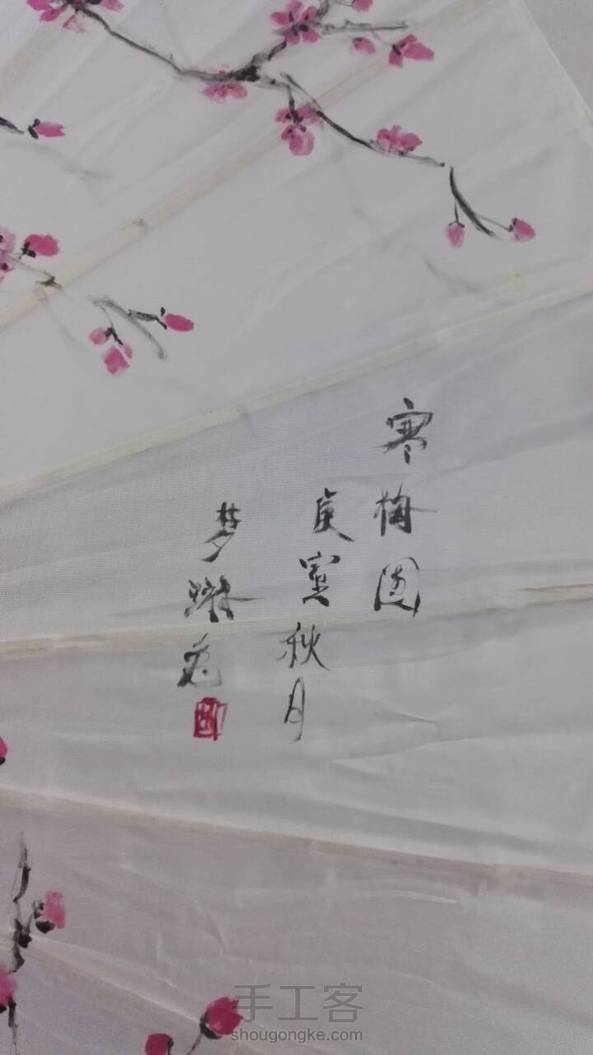 寒梅图
庚寅秋月
梦
手工客
shougongke.com